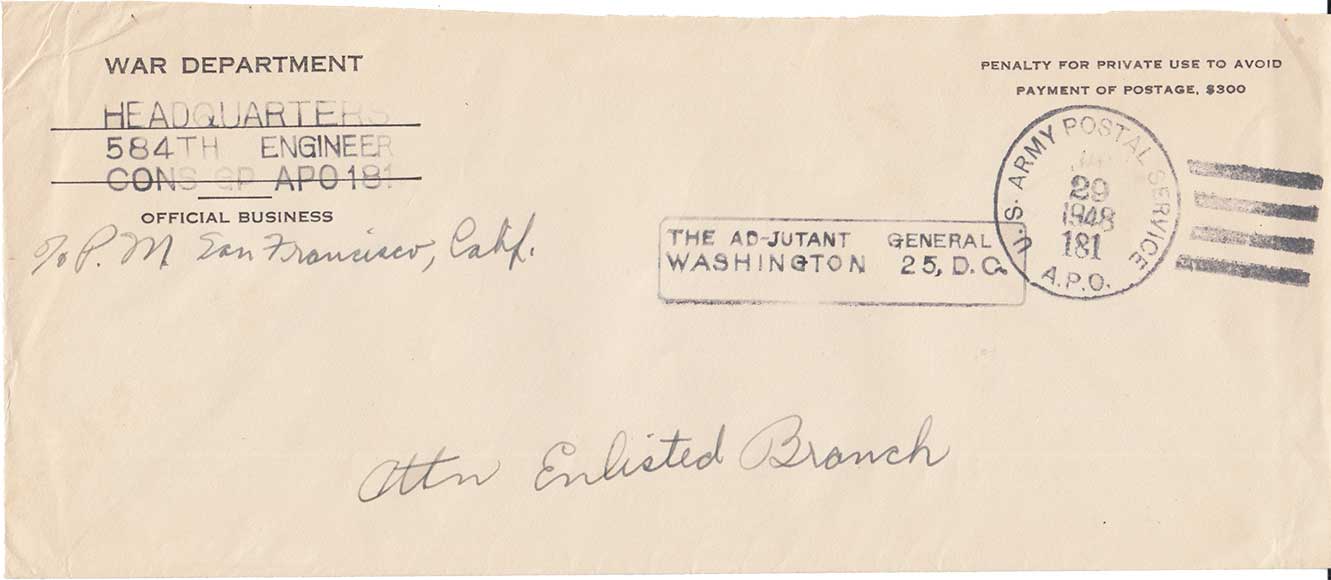 WAR DEPARTMENT
HEADQUARTERS
584TH ENGINEER
CONS GP APO 181
OFFICIAL BUSINESS
c/o P. M. San Francisco, Calif.
PENALTY FOR PRIVATE USE TO AVOID
PAYMENT OF POSTAGE, $300
THE AD-JUTANT GENERAL
WASHINGTON 25, D.C.
U.S. ARMY POSTAL SERVICE
29
1948
181
A.P.O.
Attn Enlisted Branch